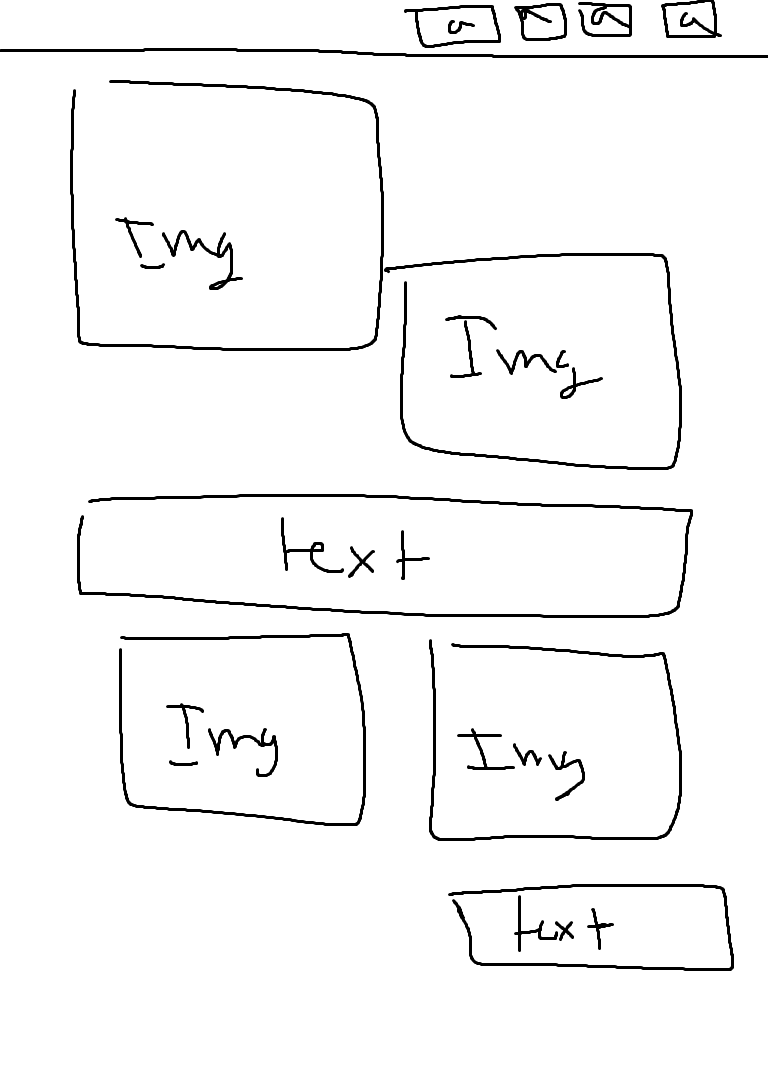 a a a
Img
Img
text
Img
Img
text